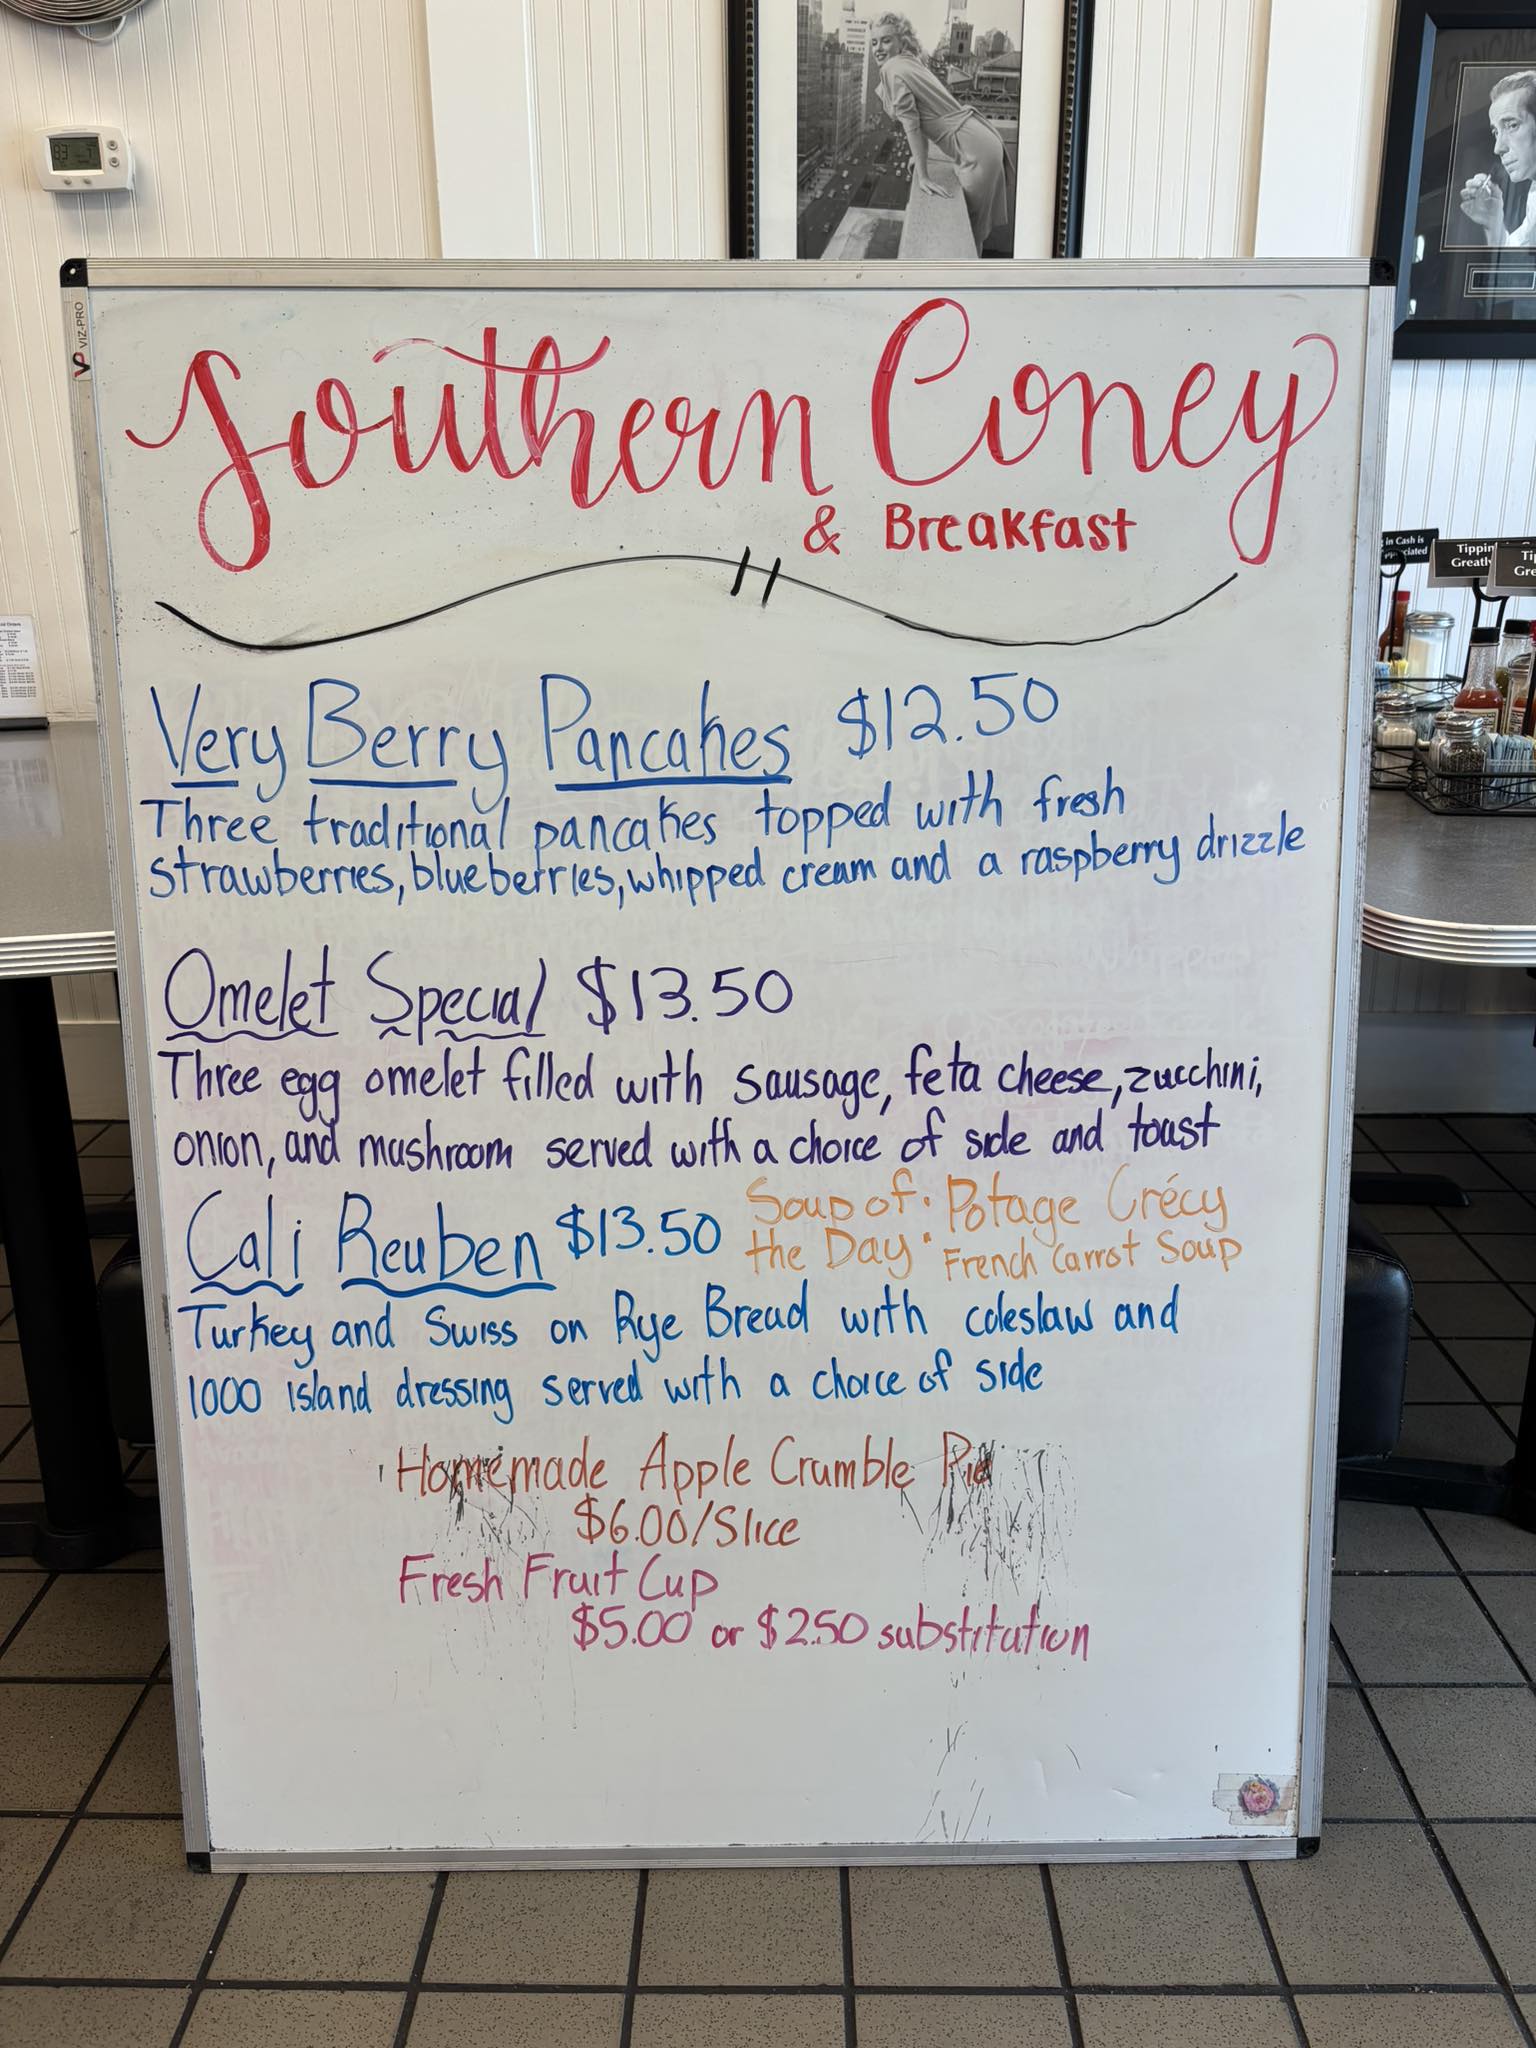 VIZ-PRO
Southern Coney
& Breakfast
Very Berry Pancakes $12.50
Three traditional pancakes topped with fresh
strawberries, blueberries, whipped cream and a raspberry drizzle
Omelet Special $13.50
Three egg omelet filled with sausage, feta cheese, zucchini,
onion, and mushroom served with a choice of side and toast
Cali Reuben $13.50
Soup of : Potage Crécy
the Day French Carrot Soup
Turkey and Swiss on Rye Bread with coleslaw and
1000 island dressing served with a choice of side
Homemade Apple Crumble Pie
$6.00/Slice
Fresh Fruit Cup
$5.00 or $2.50 substitution
in Cash is
Tippin
Greatl
Ti
Gre
83